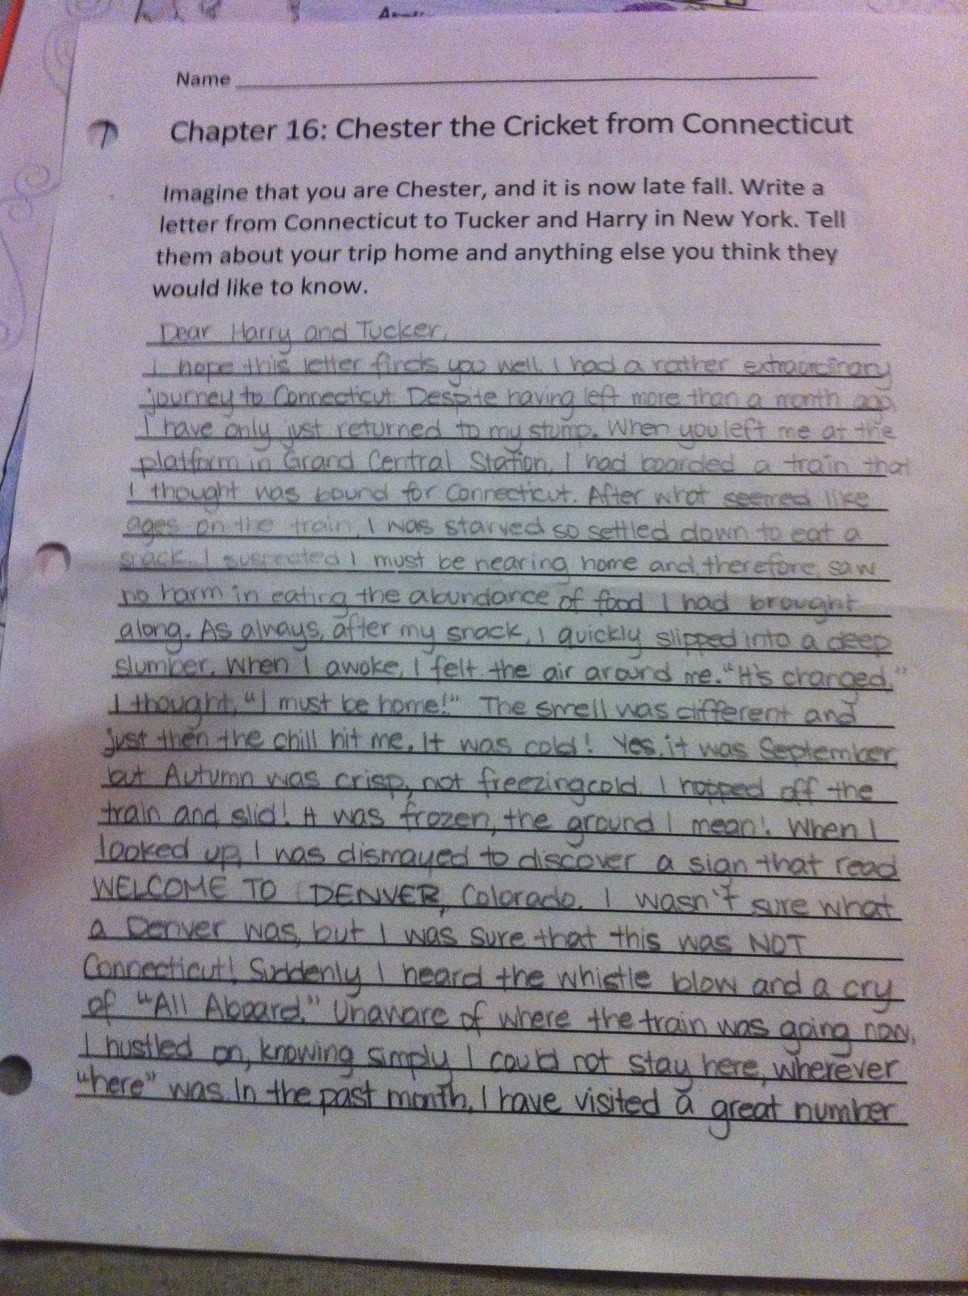 Name
Chapter 16: Chester the Cricket from Connecticut
Imagine that you are Chester, and it is now late fall. Write a
letter from Connecticut to Tucker and Harry in New York. Tell
them about your trip home and anything else you think they
would like to know.
Dear Harry and Tucker,
I hope this letter finds you well. I had a rather extraordinary
journey to Connecticut. Despite having left more than a month ago,
I have only just returned to my stump. When you left me at the
platform in Grand Central Station, I had boarded a train that
I thought was bound for Connecticut. After what seemed like
ages on the train, I was starved so settled down to eat a
snack. I suspected I must be nearing home and, therefore, saw
no harm in eating the abundance of food I had brought
along. As always, after my snack, I quickly slipped into a deep
slumber. When I awoke, I felt the air around me. "It's changed,"
I thought, "I must be home!" The smell was different and
just then the chill hit me. It was cold! Yes, it was September,
but Autumn was crisp, not freezing cold. I hopped off the
train and slid! It was frozen, the ground I mean! When I
looked up, I was dismayed to discover a sign that read
WELCOME TO DENVER, Colorado. I wasn't sure what
a Denver was, but I was sure that this was NOT
Connecticut! Suddenly I heard the whistle blow and a cry
of "All Aboard." Unaware of where the train was going now,
I hustled on, knowing simply I could not stay here, wherever
"here" was. In the past month, I have visited a great number